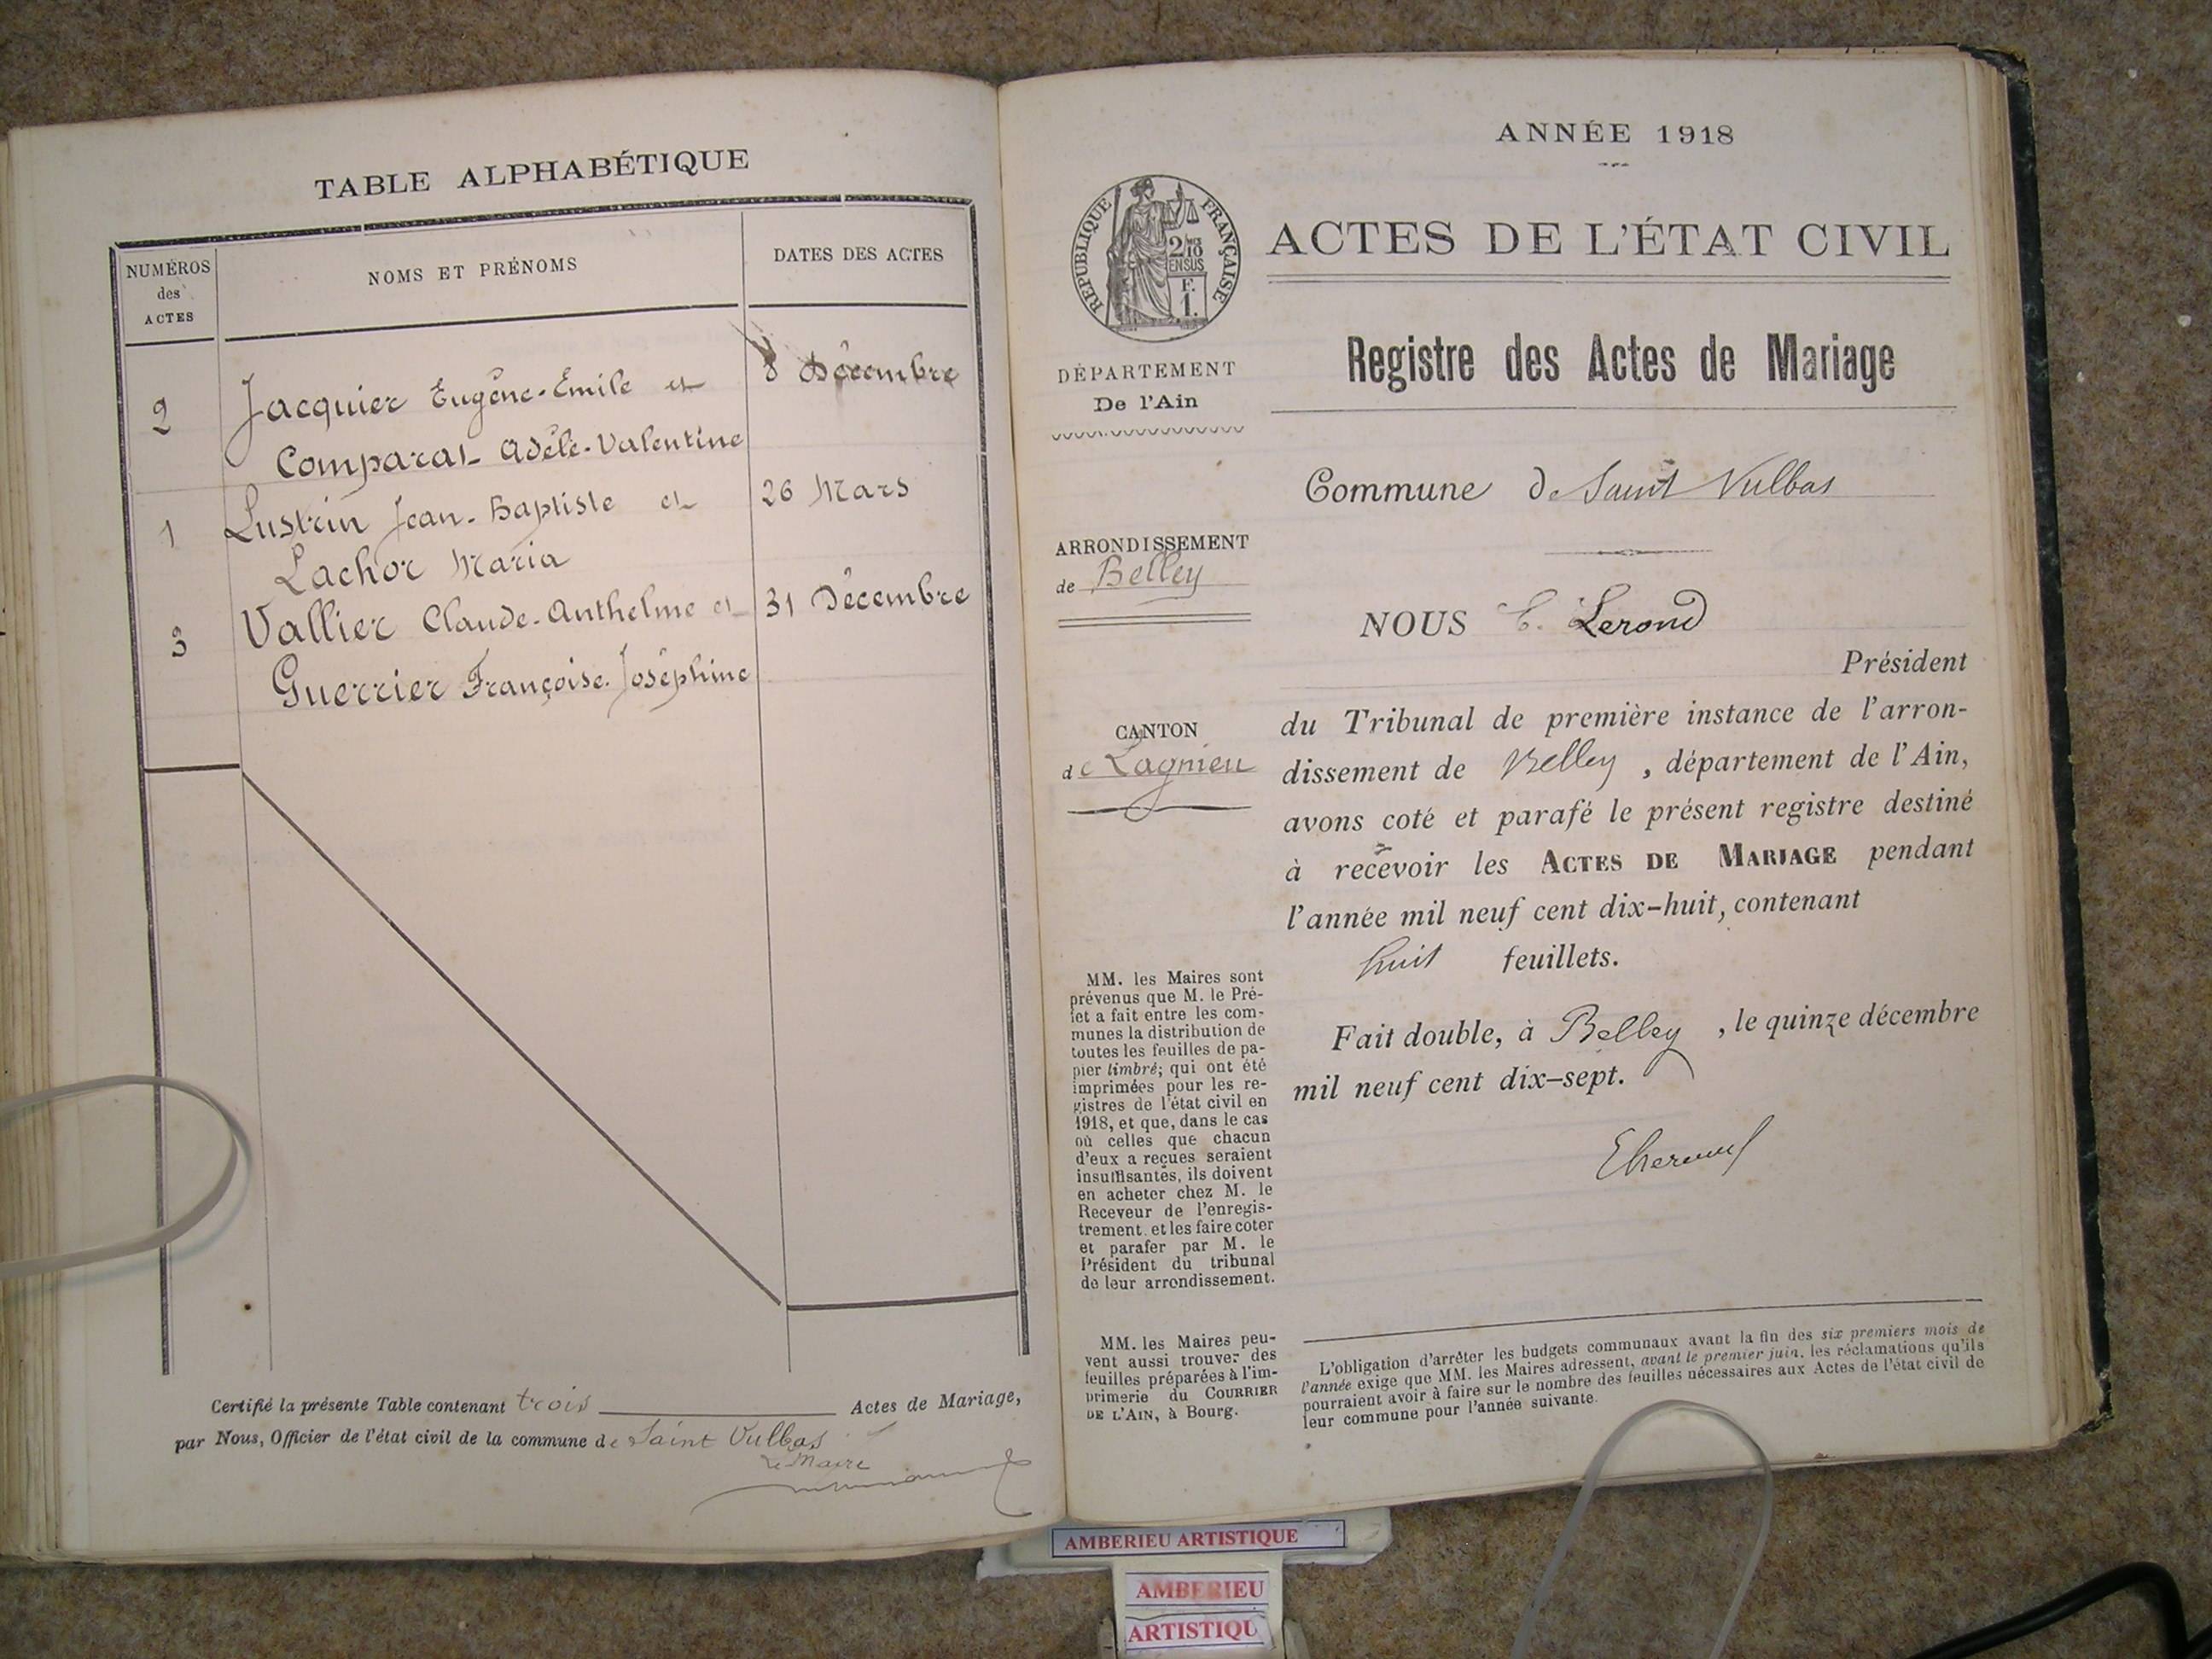 TABLE ALPHABÉTIQUE
NUMÉROS
des
ACTES
NOMS ET PRÉNOMS
DATES DES ACTES
2 Jacquier Eugène-Émile et 8 Décembre
Comparat Adèle-Valentine
1 Lustrin Jean-Baptiste et 26 Mars
Lachor Maria
3 Vallier Claude-Anthelme et 31 Décembre
Guerrier Françoise-Joséphine
Certifié la présente Table contenant trois Actes de Mariage,
par Nous, Officier de l'état civil de la commune de Saint Vulbas
Le Maire
ANNÉE 1918
RÉPUBLIQUE FRANÇAISE
2/10
EN SUS
F.
1.
ACTES DE L'ÉTAT CIVIL
Registre des Actes de Mariage
DÉPARTEMENT
De l'Ain
Commune de Saint Vulbas
ARRONDISSEMENT
de Belley
NOUS E. Lerond
Président
CANTON
de Lagnieu
du Tribunal de première instance de l'arron-
dissement de Belley, département de l'Ain,
avons coté et parafé le présent registre destiné
à recevoir les ACTES DE MARIAGE pendant
l'année mil neuf cent dix-huit, contenant
huit feuillets.
Fait double, à Belley, le quinze décembre
mil neuf cent dix-sept.
MM. les Maires sont
prévenus que M. le Pré-
fet a fait entre les com-
munes la distribution de
toutes les feuilles de pa-
pier timbré; qui ont été
imprimées pour les re-
gistres de l'état civil en
1918, et que, dans le cas
où celles que chacun
d'eux a reçues seraient
insuffisantes, ils doivent
en acheter chez M. le
Receveur de l'enregis-
trement et les faire coter
et parafer par M. le
Président du tribunal
de leur arrondissement.
MM. les Maires peu-
vent aussi trouver des
feuilles préparées à l'im-
primerie du COURRIER
DE L'AIN, à Bourg.
L'obligation d'arrêter les budgets communaux avant la fin des six premiers mois de
l'année exige que MM. les Maires adressent, avant le premier juin, les réclamations qu'ils
pourraient avoir à faire sur le nombre des feuilles nécessaires aux Actes de l'état civil de
leur commune pour l'année suivante.
AMBERIEU ARTISTIQUE
AMBERIEU
ARTISTIQU